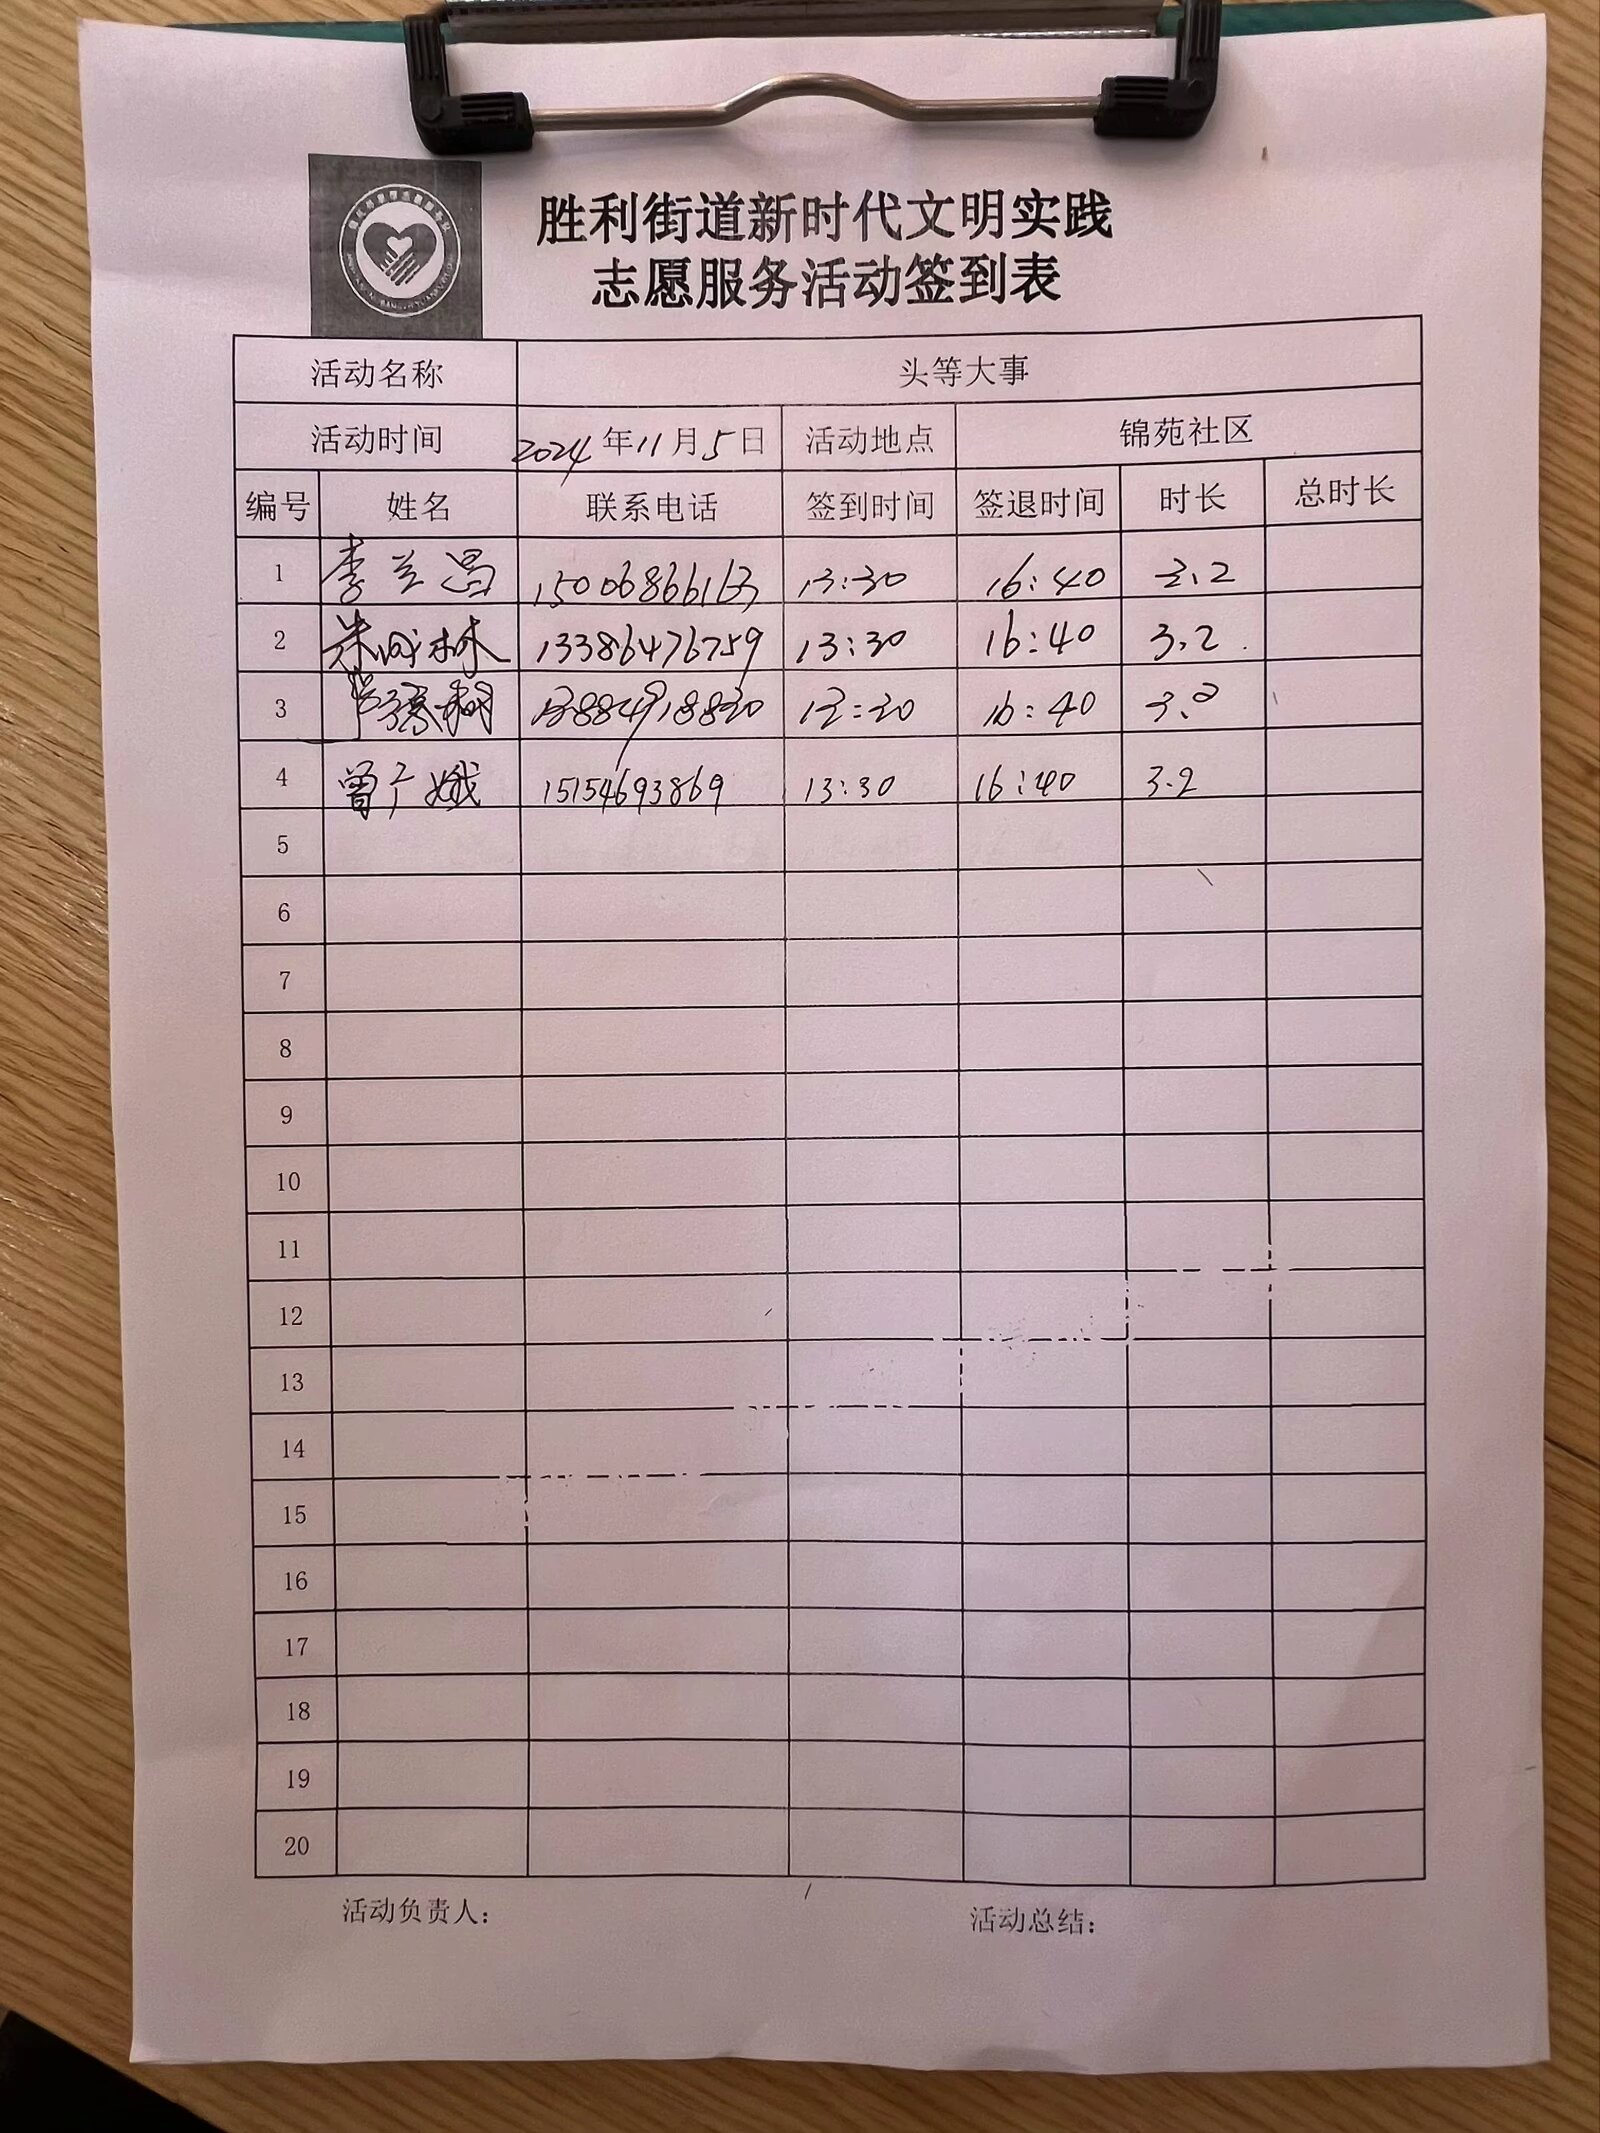 胜利街道新时代文明实践
志愿服务活动签到表
活动名称 头等大事
活动时间 2024年11月5日 活动地点 锦苑社区
编号 姓名 联系电话 签到时间 签退时间 时长 总时长
1 李兰昌 15006866163 13:30 16:40 3.2
2 朱成林 13386476759 13:30 16:40 3.2
3 13:30 16:40 3.2
4 曾广娥 15154693869 13:30 16:40 3.2
5
6
7
8
9
10
11
12
13
14
15
16
17
18
19
20
活动负责人： 活动总结：